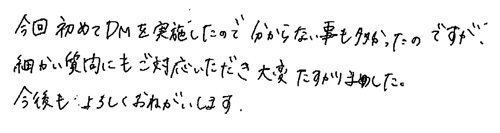 今回初めてDMを実施したので分からない事も多かったのですが、
細かい質問にもご対応いただき大変たすかりました。
今後もよろしくおねがいします.